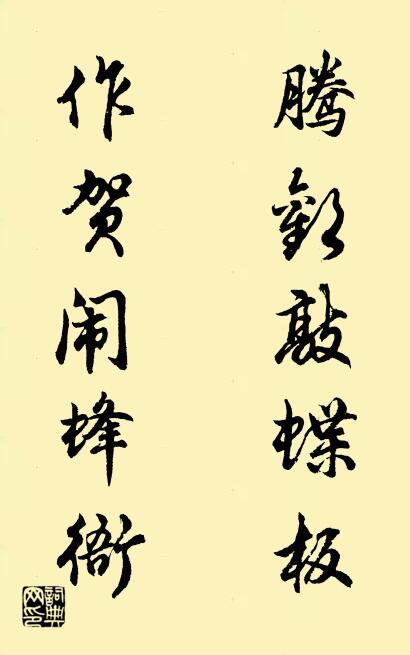 腾歡敲蝶板
作贺闹蜂衙
詞典
网印